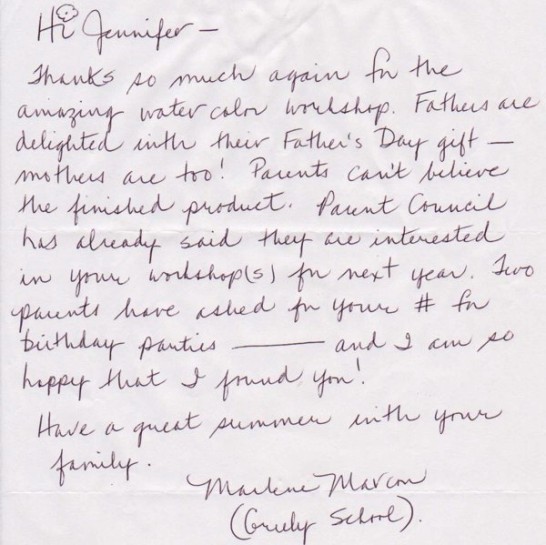 Hi Jennifer –
Thanks so much again for the
amazing water color workshop. Fathers are
delighted with their Father's Day gift –
mothers are too! Parents can't believe
the finished product. Parent Council
has already said they are interested
in your workshop(s) for next year. Two
parents have asked for your # for
birthday parties ——— and I am so
happy that I found you!
Have a great summer with your
family.
Marlene Marcon
(Greely School).